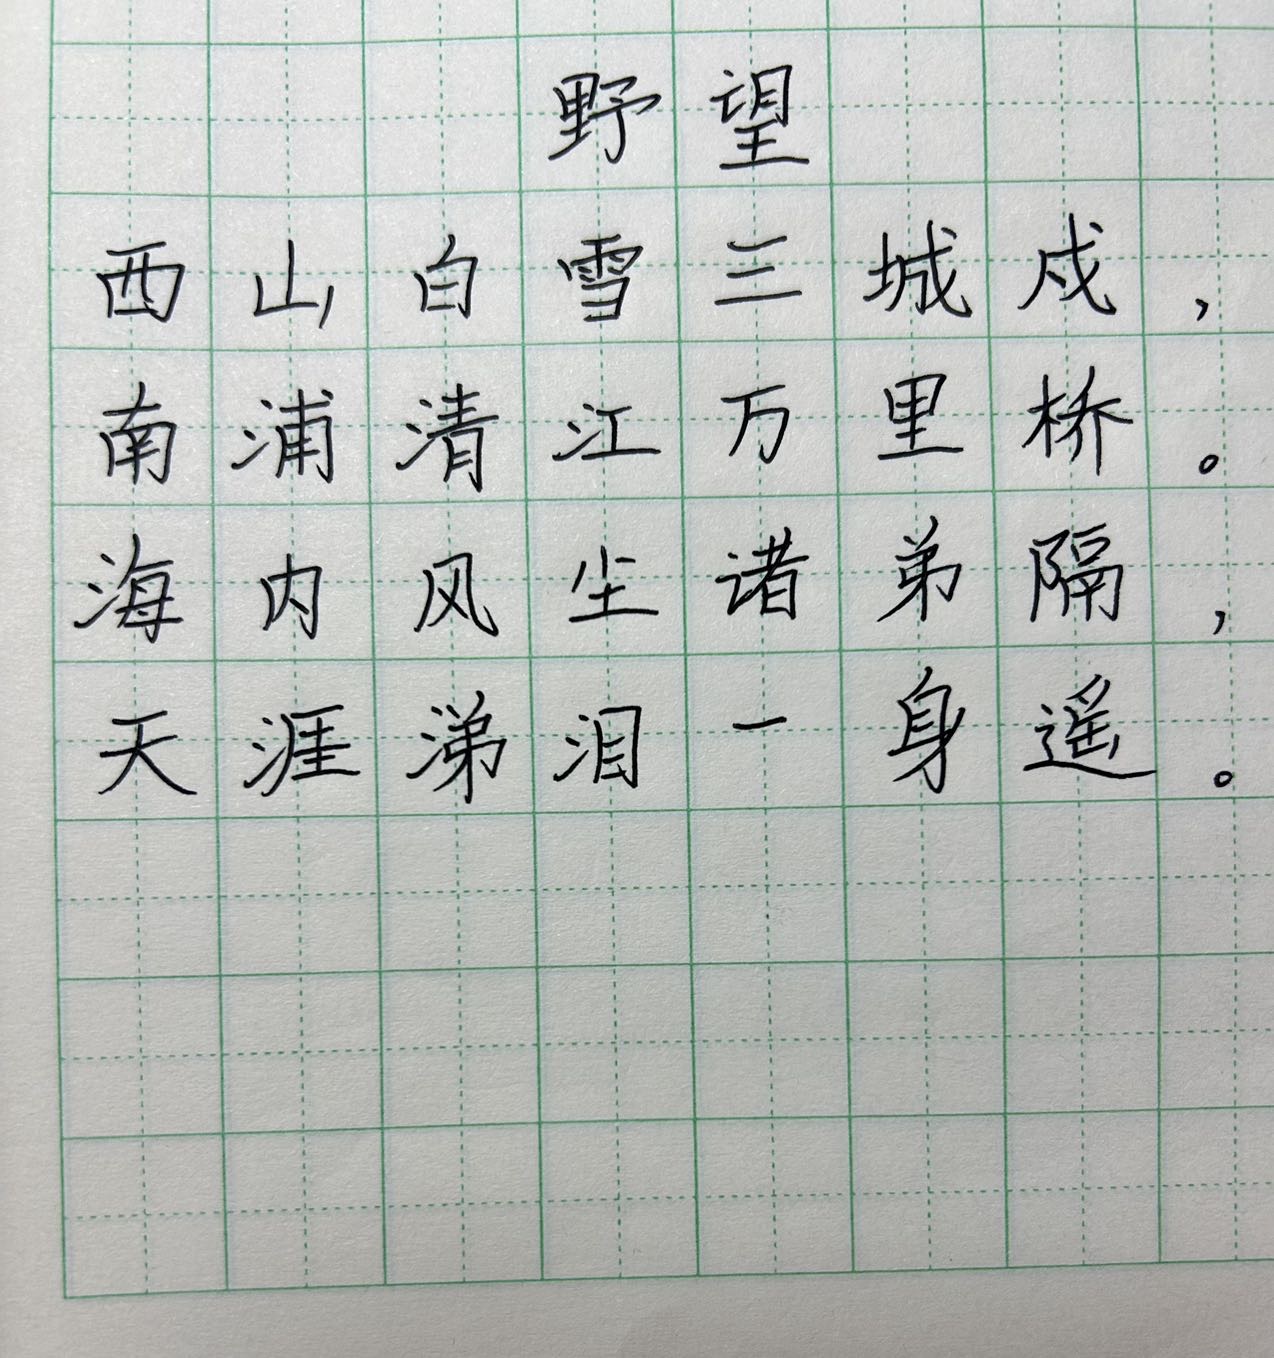 野望
西山白雪三城戍，
南浦清江万里桥。
海内风尘诸弟隔，
天涯涕泪一身遥。